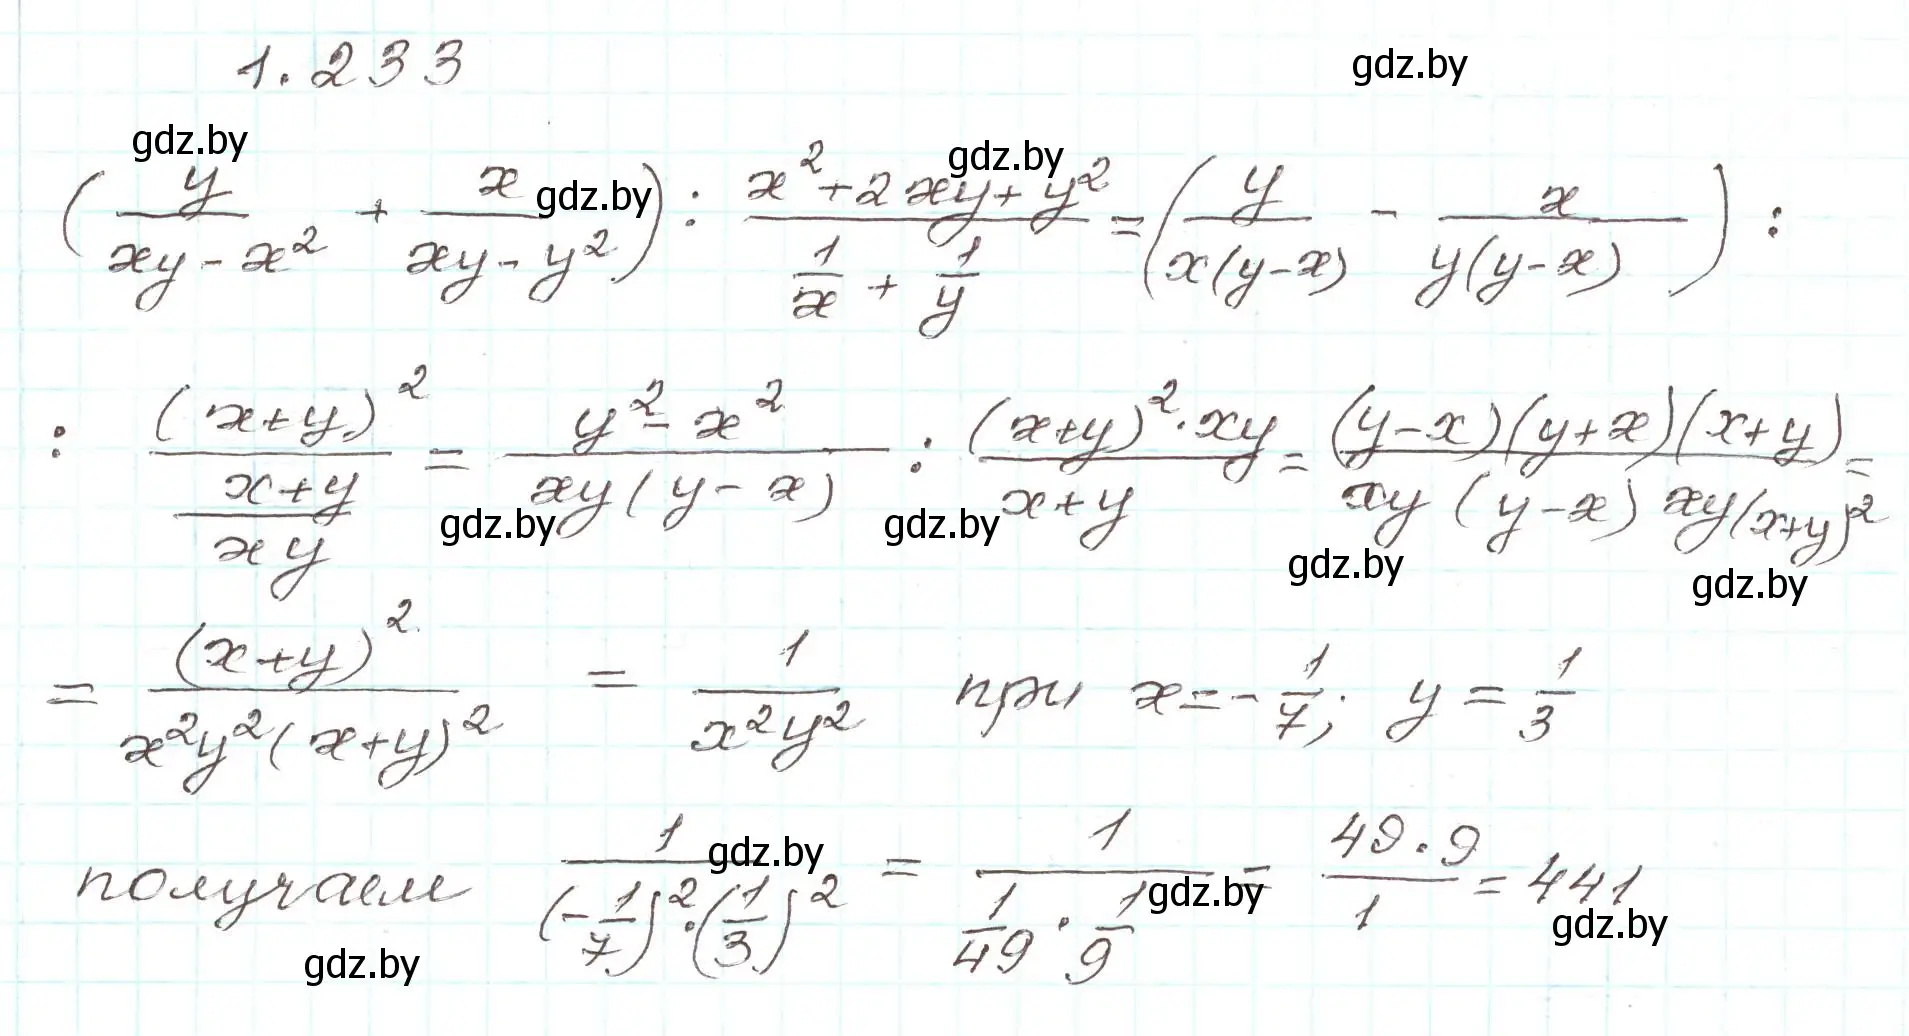 1.233
gdz.by
gdz.by gdz.by gdz.by
(y/(xy-x²) + x/(xy-y²)) : (x²+2xy+y²)/(1/x + 1/y) = (y/(x(y-x)) - x/(y(y-x))) :
: (x+y)²/((x+y)/(xy)) = (y²-x²)/(xy(y-x)) : ((x+y)²·xy)/(x+y) = ((y-x)(y+x)(x+y))/(xy(y-x) xy(x+y)²) =
gdz.by gdz.by gdz.by gdz.by
= (x+y)²/(x²y²(x+y)²) = 1/(x²y²) при x=-1/7; y=1/3
получаем 1/((-1/7)²·(1/3)²) = 1/(1/49·1/9) = (49·9)/1 = 441
gdz.by gdz.by gdz.by gdz.by